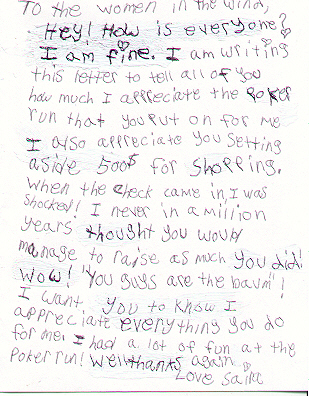 To the women in the wind,
Hey! How is everyone?
I am fine. I am writing
this letter to tell all of you
how much I appreciate the Poker
run that you put on for me
I also appreciate you setting
aside 500$ for shopping.
When the check came in, I was
shocked! I never in a million
years thought you would
manage to raise as much you did!
WOW! "You guys are the baum"!
I want you to know I
appreciate everything you do
for me. I had a lot of fun at the
Poker run! Well thanks again
Love